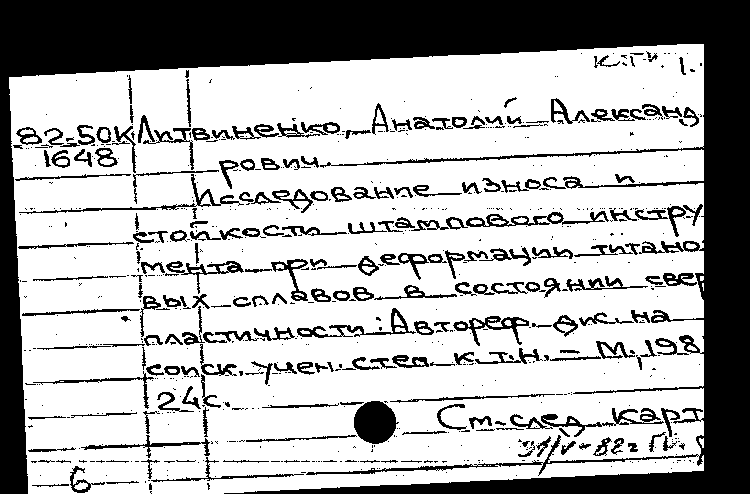 к.т.н. 1.
82-50К Литвиненко, Анатолий Александ
1648 рович.
Исследование износа и
стойкости штампового инстру
мента при деформации титано
вых сплавов в состоянии свер
пластичности: Автореф. дис. на
соиск. учен. степ. к.т.н. – М., 198
24с.
См. след. карт
6